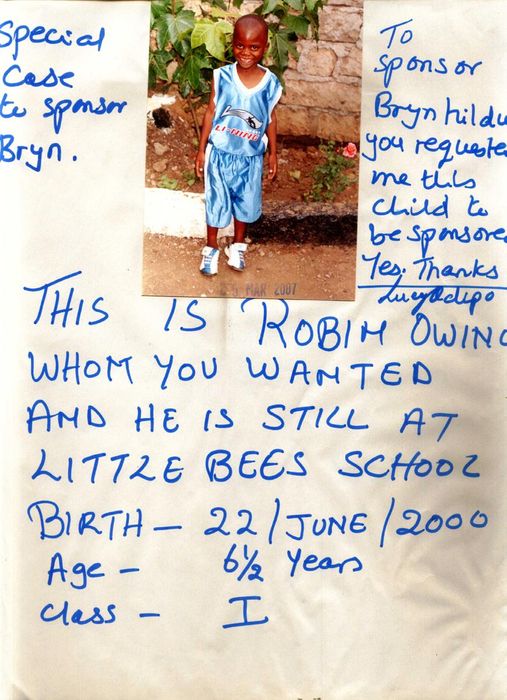 Special
Case
to sponsor
Bryn.
To
sponsor
Bryn hildu
you requeste
me this
child to
be sponsore
Yes. Thanks
LI-NING
MAR 2007
THIS IS ROBIM OWINO
WHOM YOU WANTED
AND HE IS STILL AT
LITTLE BEES SCHOOL
BIRTH - 22/JUNE/2000
Age - 6½ Years
Class - I